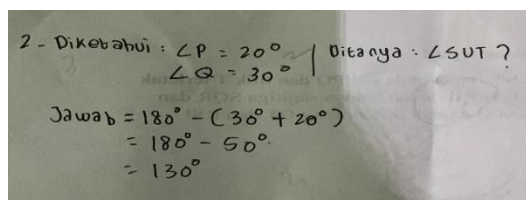 2 - Diketahui : ∠P = 20° | Ditanya : ∠SUT ?
∠Q = 30°
Jawab = 180° - (30° + 20°)
= 180° - 50°
= 130°